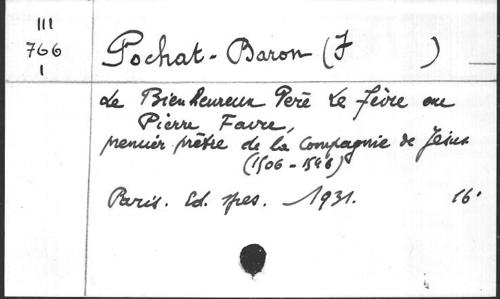 III
766
I
Pochat-Baron (F )
Le Bienheureux Père Le Fèvre ou
Pierre Favre,
premier prêtre de la Compagnie de Jésus
(1506-1546)
Paris. Ed. spes. 1931. 16°